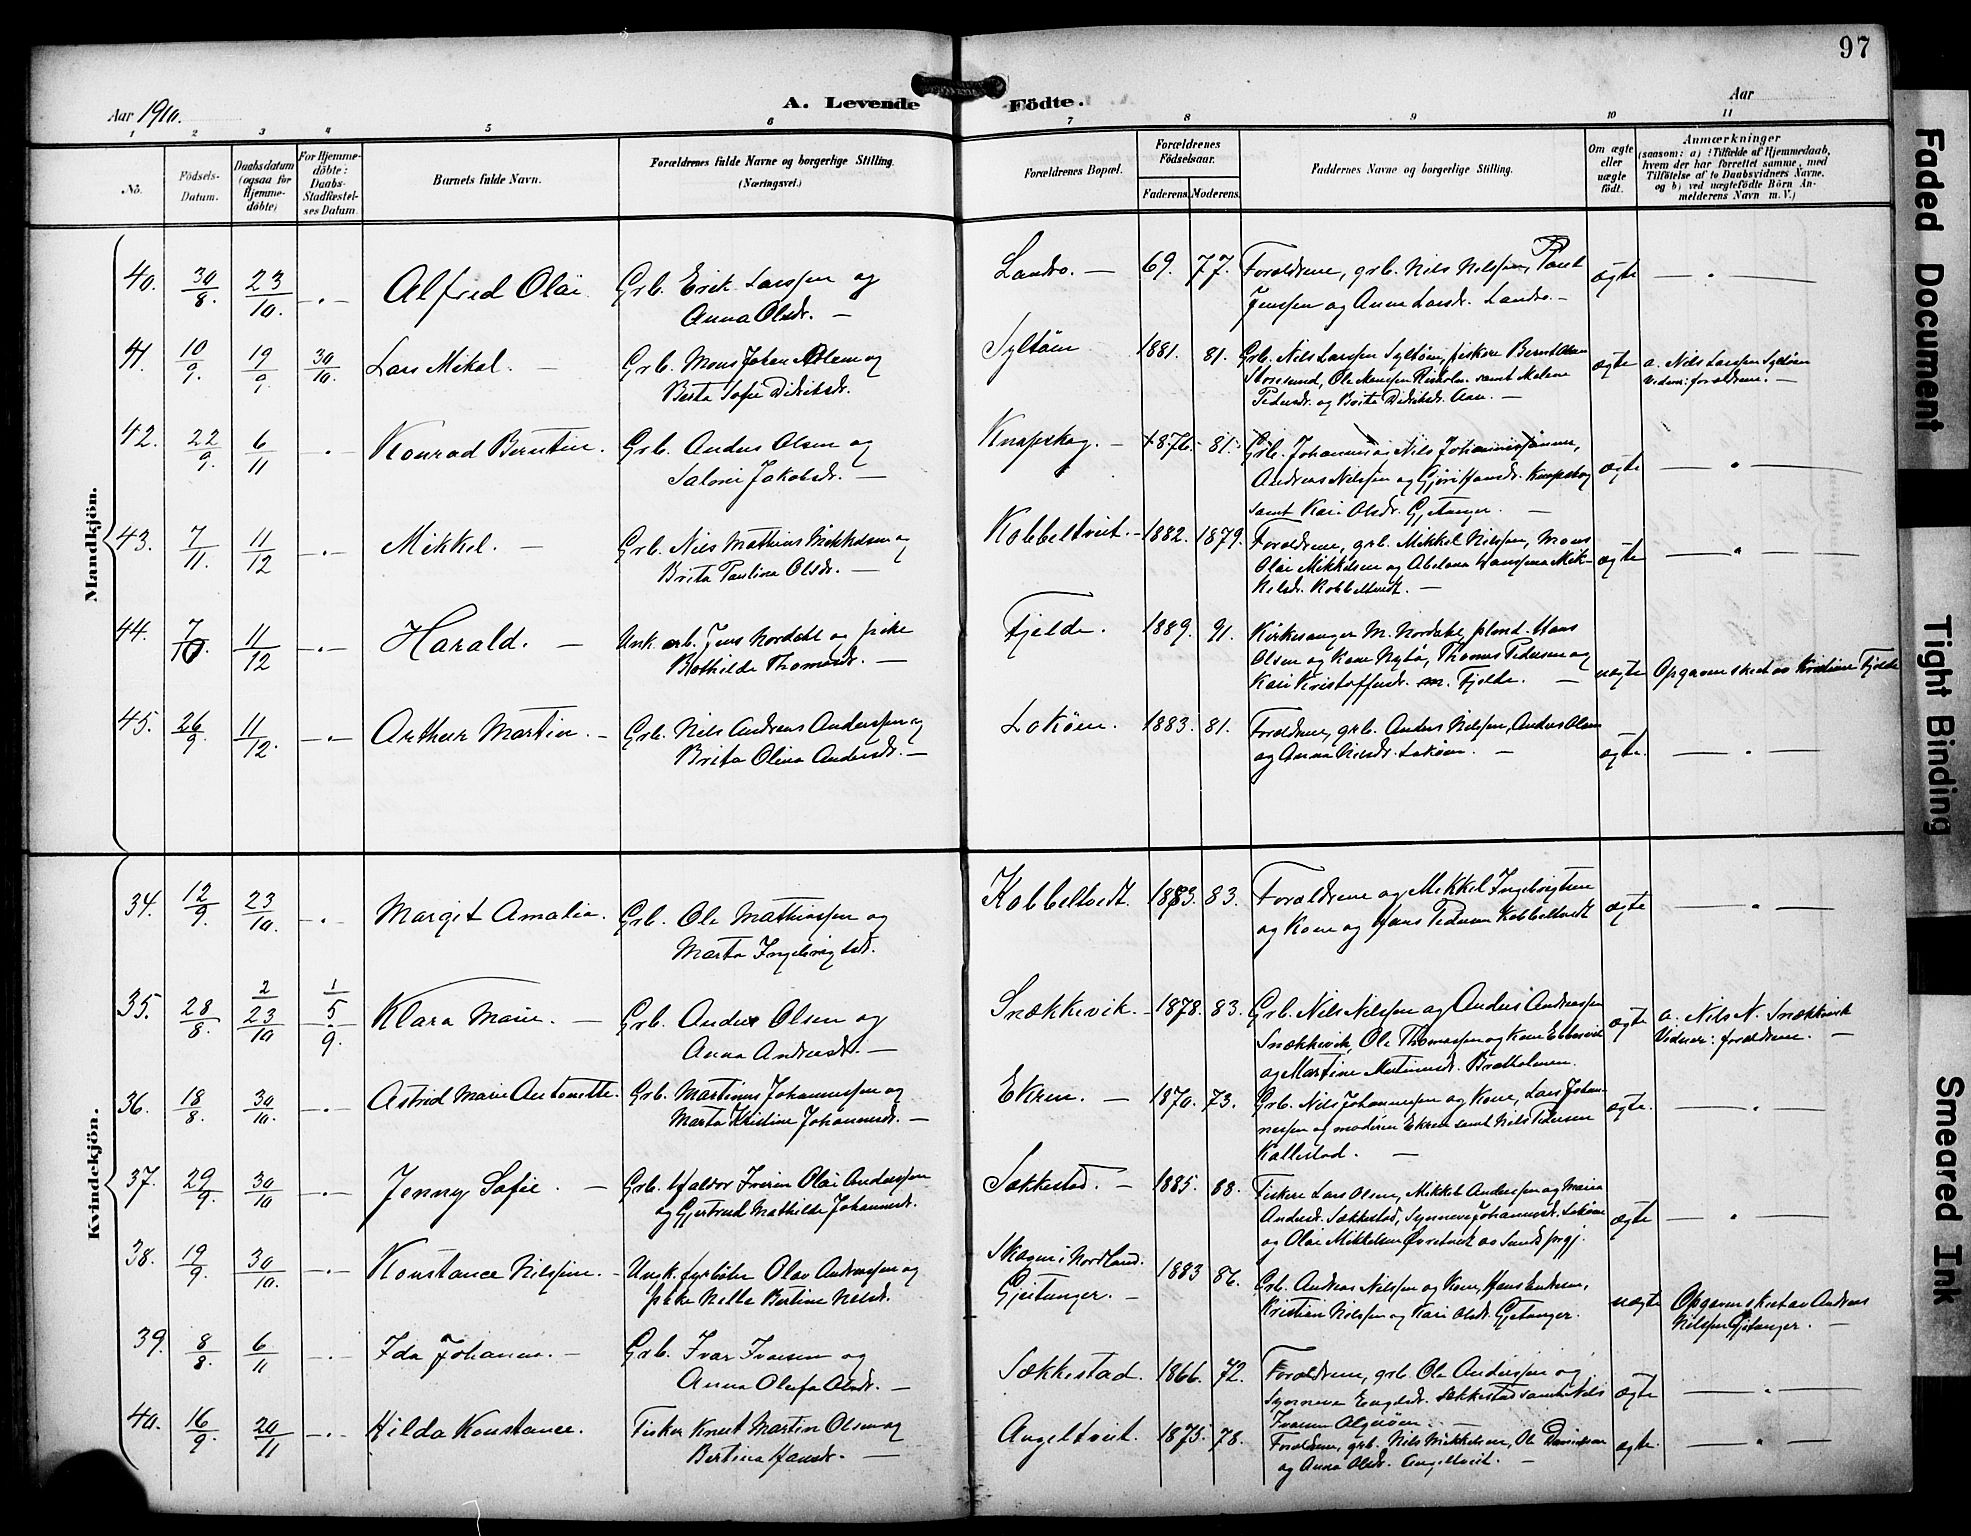 97
Aar 1910.
A. Levende Födte.
Aar
1 2 3 4 5 6 7 8 9 10 11
No.
Födsels-Datum.
Daabsdatum (ogsaa for Hjemmedöbte)
For Hjemmedöbte: Daabs-Stadfæstelses Datum
Barnets fulde Navn.
Forældrenes fulde Navne og borgerlige Stilling.
(Næringsvei.)
Forældrenes Bopæl.
Forældrenes Födselsaar.
Faderens. Moderens.
Faddernes Navne og borgerlige Stilling.
Om ægte eller uægte födt.
Anmærkninger
(saasom: a) i Tilfælde af Hjemmedaab, hvem der har forrettet samme, med Tilföielse af to Daabsvidners Navne, og b) ved uægtefödte Börn Anmelderens Navn m. V.)
Mandkjön.
40. 30/8. 23/10. Alfred Olai Grb. Erik Larssen og
Anna Olsdr. —
Landro. — 69. 77. Forældrene, grb. Nils Nilssen,
Jenssen og Anna Larsdr. Landro. —
ægte
41. 10/9. 19/9. 30/10. Lars Mikal. — Grb. Mons Johan Olsen og
Berta Sofie Didriksdr.
Syltöen 1881. 81. Grb. Nils Larssen Syltöen, fisker Bernt Olsen
Storesund, Ole Monssen Risholm samt Malene
Pedersdr. og Brita Didriksdr. —
ægte a. Nils Larssen Syltöen
Vidner: forældrene. —
42. 22/9. 6/11 Konrad Berntin. Grb. Anders Olsen og
Salomi Jakobsdr. —
Knapskog. — 1876. 81. Grb. Johannes og Nils Johannessönner,
Andreas Nilssen og Gjöri Hansdr. Knapskog
samt Kari Olsdr. Gjetanger. —
ægte
43. 7/11. 11/12 Mikkel. — Grb. Nils Mathias Mikkelsen og
Brita Paulina Olsdr. —
Kobbeltveit. — 1882. 1879. Forældrene, grb. Mikkel Nilssen, Mons
Olai Mikkelsen og Abelona
Nilsdr. Kobbeltvedt. —
ægte
44. 7/10. 11/12 Harald. — Unk. arb. Jens Nordahl og pike
Bothilde Thomasdr. —
Fjelde. 1889. 91. Kirkesanger M. Nordahl, Hans
Olsen og Kone Nybö, Thomas Pedersen og
Kari Kristoffersdr. Fjelde. —
uægte Opgaven sket av Kristine Fjelde
45. 26/9. 11/12. Arthur Martin. — Grb. Nils Andreas Anderssen og
Brita Olina Andersdr. —
Loköen. 1883. 81. Forældrene, grb. Anders Nilssen, Anders Olsen
og Anna Nilsdr. Loköen. —
ægte.
Kvindekjön.
34. 12/9. 23/10. Margit Amalia. Grb. Ole Mathiassen og
Marta Ingebrigtsdr.
Kobbeltvedt. 1883. 83. Forældrene og Mikkel Ingebrigtsen
og Kone og Hans Pedersen Kobbeltvedt
ægte
35. 28/8. 2 23/10 1 5/9. Klara Marie. — Grb. Anders Olsen og
Anna Andersdr. —
Snækkevik. 1878. 83. Grb. Nils Nilssen og Anders Andreassen
Snækkevik, Ole Thomassen og Kone Ebbesvik
og Martine Martinusdr. Bratholmen.
ægte a. Nils N. Snækkevik
Vidner: forældrene. —
36. 18/8. 30/10. Astrid Marie Antonette. Grb. Martinus Johannessen og
Marta Kristine Johannesdr. —
Ekren. — 1870. 73. Grb. Nils Johannessen og Kone, Lars Johan-
nessen og moderen Ekren samt Nils Pedersen
Kallestad. —
ægte.
37. 29/9. 30/10 Jenny Sofie. — Grb. Haldor Iverin Olai Anderssen
og Gjertrud Mathilde Johannesdr.
Sækkestad. — 1885. 88. Fiskere Lars Olsen, Mikkel Anderssen og Maria
Andersdr. Sækkestad, Synneve Johannesdr. Loköen
og Olai Mikkelsen Övretveit av Sunds prgj.
ægte
38. 19/9. 30/10. Konstance Nilssine. — Ungk. fyrböter Olav Andreassen og
pike Nella Bertine Nilsdr.
Skagen i Nordland.
Gjeitanger. — 1883 86. Grb. Andreas Nilssen og Kone, Hans Endresen,
Kristian Nilssen og Kari Olsdr. Gjetanger.
uægte Opgaven sket av Andreas
Nilssen Gjetanger. —
39. 8/8. 6/11 Ida Johanna. — Grb. Ivar Ivarsen og
Anna Olufa Olsdr. —
Sækkestad. 1866. 72. Forældrene, grb. Ole Anderssen og
Synneva Sækkestad samt Nils
Ivarsen Algeröen. —
ægte
40. 16/9. 20/11 Hilda Konstance. Fisker Knut Martin Olsen og
Bertina Hansdr. —
Angeltveit. 1875. 78. Forældrene, grb. Nils Mikkelsen, Ole
og Anna Olsdr. Angeltveit. —
ægte.
Faded Document
Tight Binding
Smeared Ink